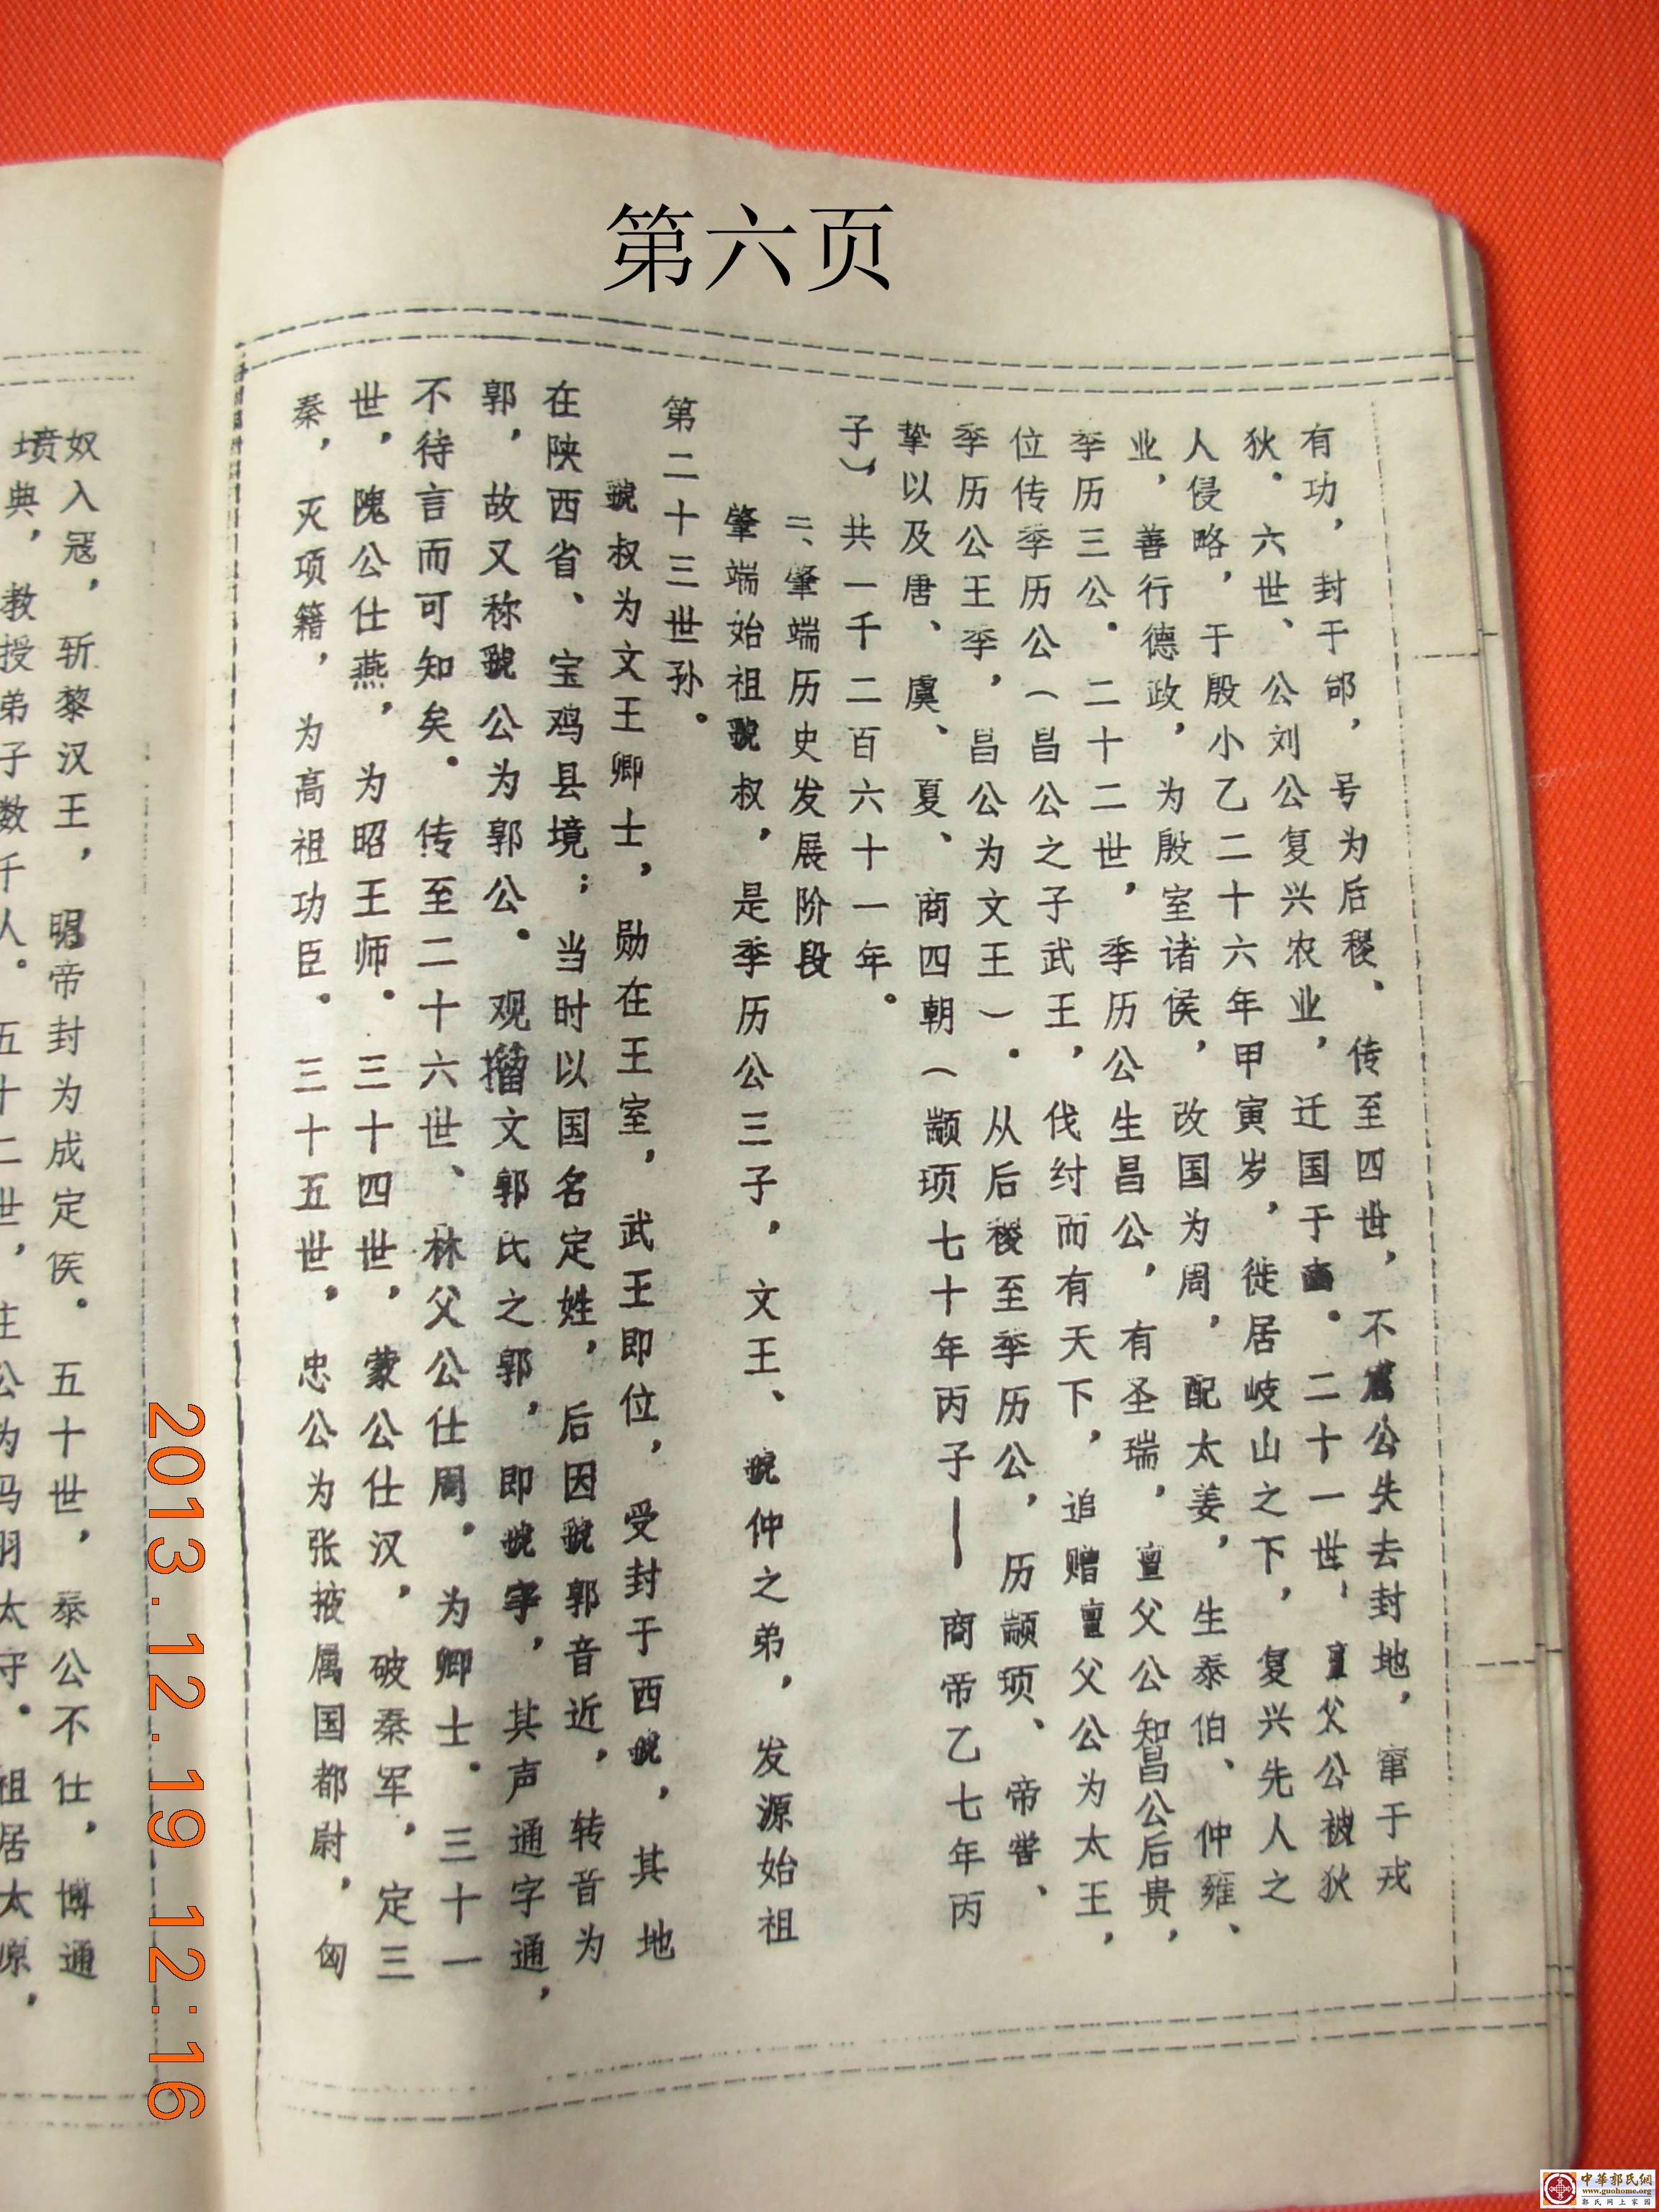 第六页
有功，封于邰，号为后稷、传至四世，不窋公失去封地，窜于戎
狄．六世、公刘公复兴农业，迁国于豳．二十一世、亶父公被狄
人侵略，于殷小乙二十六年甲寅岁，徙居岐山之下，复兴先人之
业，善行德政，为殷室诸侯，改国为周，配太姜，生泰伯、仲雍、
季历三公．二十二世，季历公生昌公，有圣瑞，亶父公知昌公后贵，
位传季历公（昌公之子武王，伐纣而有天下，追赠亶父公为太王，
季历公王季，昌公为文王）．从后稷至季历公，历颛顼、帝喾、
挚以及唐、虞、夏、商四朝（颛顼七十年丙子—商帝乙七年丙
子），共一千二百六十一年。
二、肇端历史发展阶段
肇端始祖虢叔，是季历公三子，文王、虢仲之弟，发源始祖
第二十三世孙。
虢叔为文王卿士，勋在王室，武王即位，受封于西虢，其地
在陕西省、宝鸡县境；当时以国名定姓，后因虢郭音近，转音为
郭，故又称虢公为郭公．观籀文郭氏之郭，即虢字，其声通字通，
不待言而可知矣．传至二十六世、林父公仕周，为卿士．三十一
世，隗公仕燕，为昭王师．三十四世，蒙公仕汉，破秦军，定三
秦，灭项籍，为高祖功臣．三十五世，忠公为张掖属国都尉，匈
奴入寇，斩黎汉王，明帝封为成定侯．五十世，泰公不仕，博通
坟典，教授弟子数千人．五十二世，主公为冯翊太守．祖居太原，
2013.12.19 12:16
中華郭氏網
www.guohome.org
郭氏网上家园